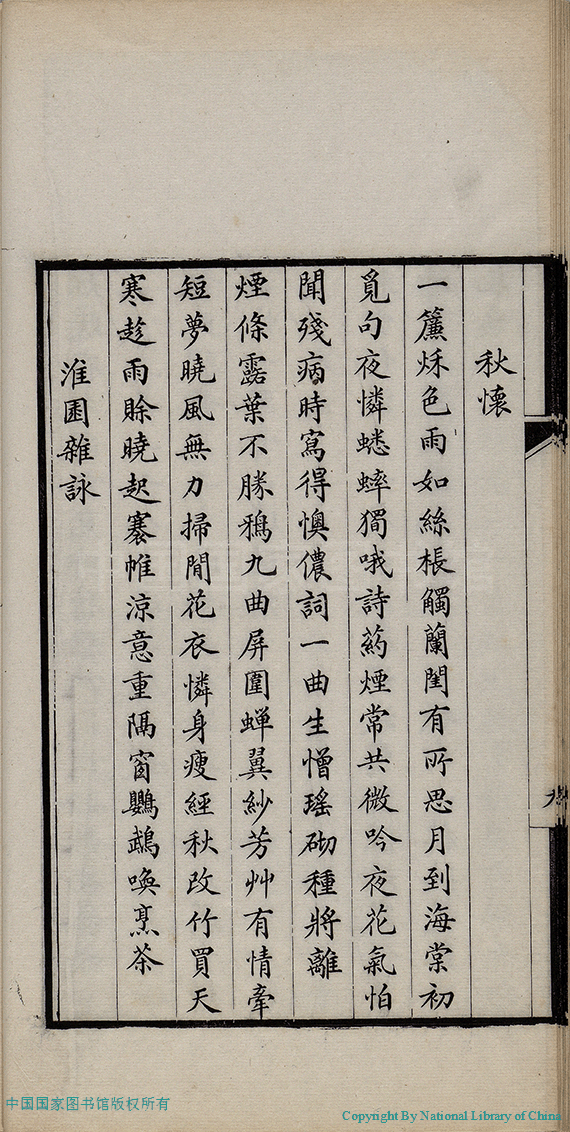 秋懷
一簾秌色雨如絲棖觸蘭閨有所思月到海棠初
覓句夜憐蟋蟀獨哦詩葯煙常共微吟夜花氣怕
聞殘病時寫得懊儂詞一曲生憎瑤砌種將離
煙條露葉不勝鴉九曲屏圍蟬翼紗芳艸有情牽
短夢曉風無力掃閒花衣憐身瘦經秋改竹買天
寒趁雨賒曉起褰帷涼意重隔窗鸚鵡喚烹茶
淮園雜詠
中国国家图书馆版权所有
Copyright By National Library of China